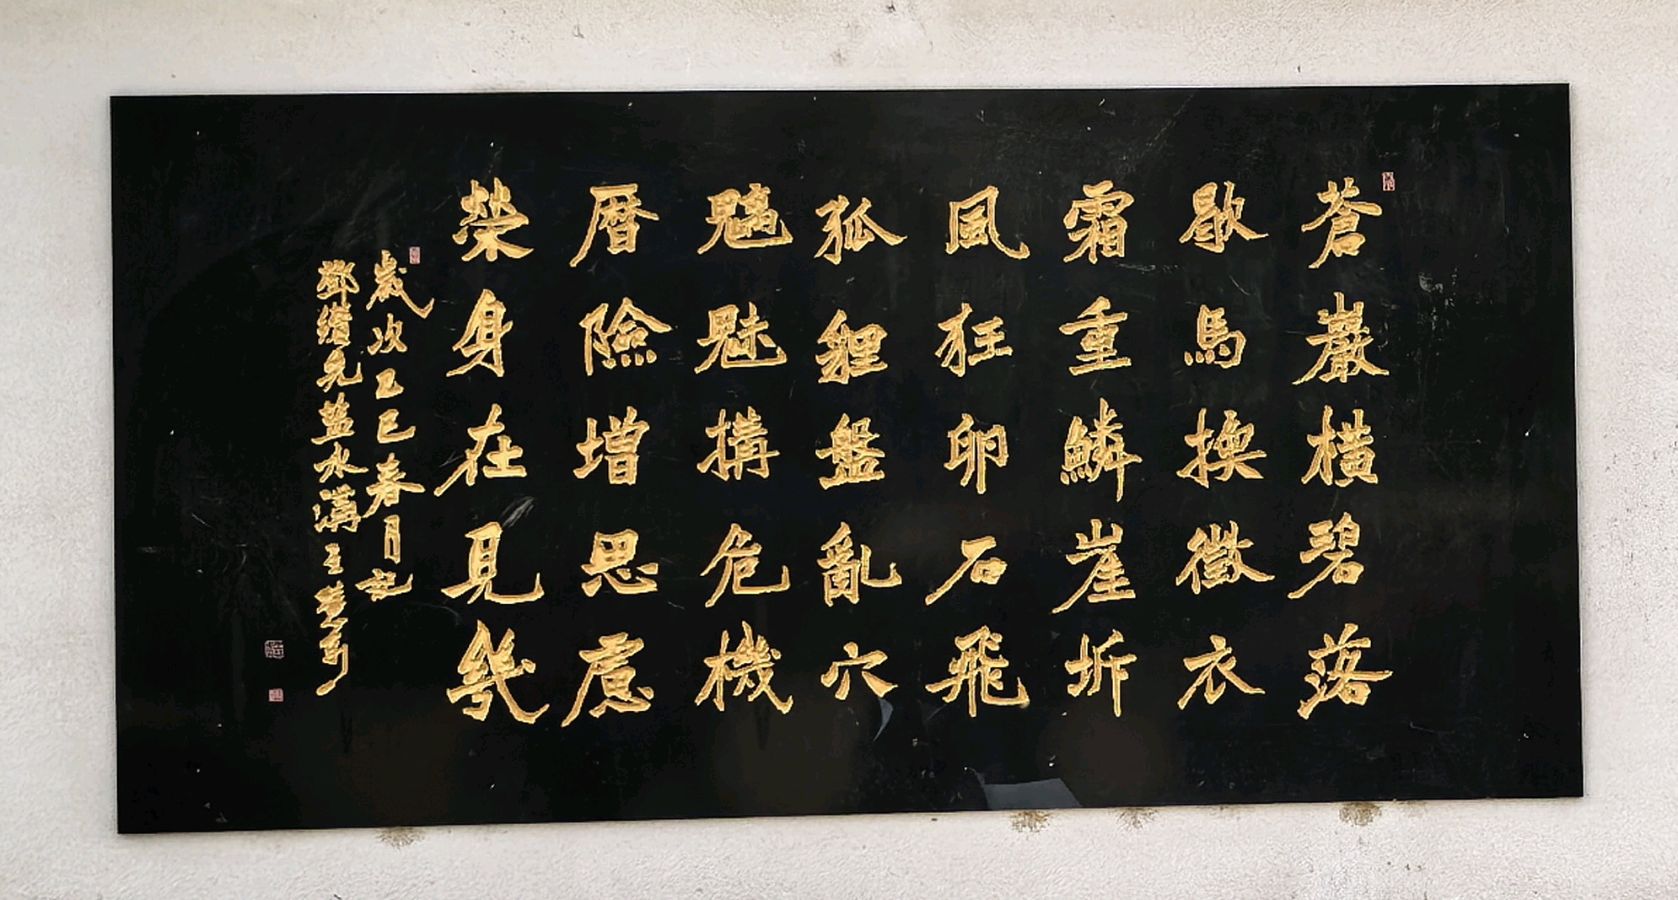 蒼巖橫碧落
歇馬換徵衣
霜重鱗崖坼
風狂卵石飛
孤貍盤亂穴
魑魅搆危機
曆險增思慮
榮身在見幾
歲次己巳春月記
鄧纘先蓝水溝